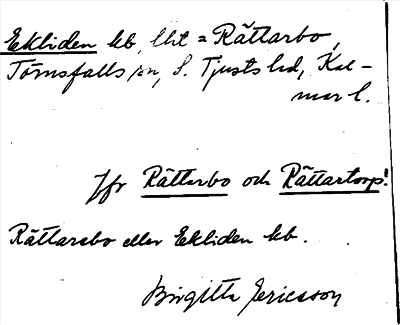 Ekliden hb, lht = Rättarbo,
Törnsfalls sn, S. Tjusts hd, Kal-
mar l.
Jfr Rättarbo och Rättartorp!
Rättarebo eller Ekliden hb.
Birgitta Ericsson